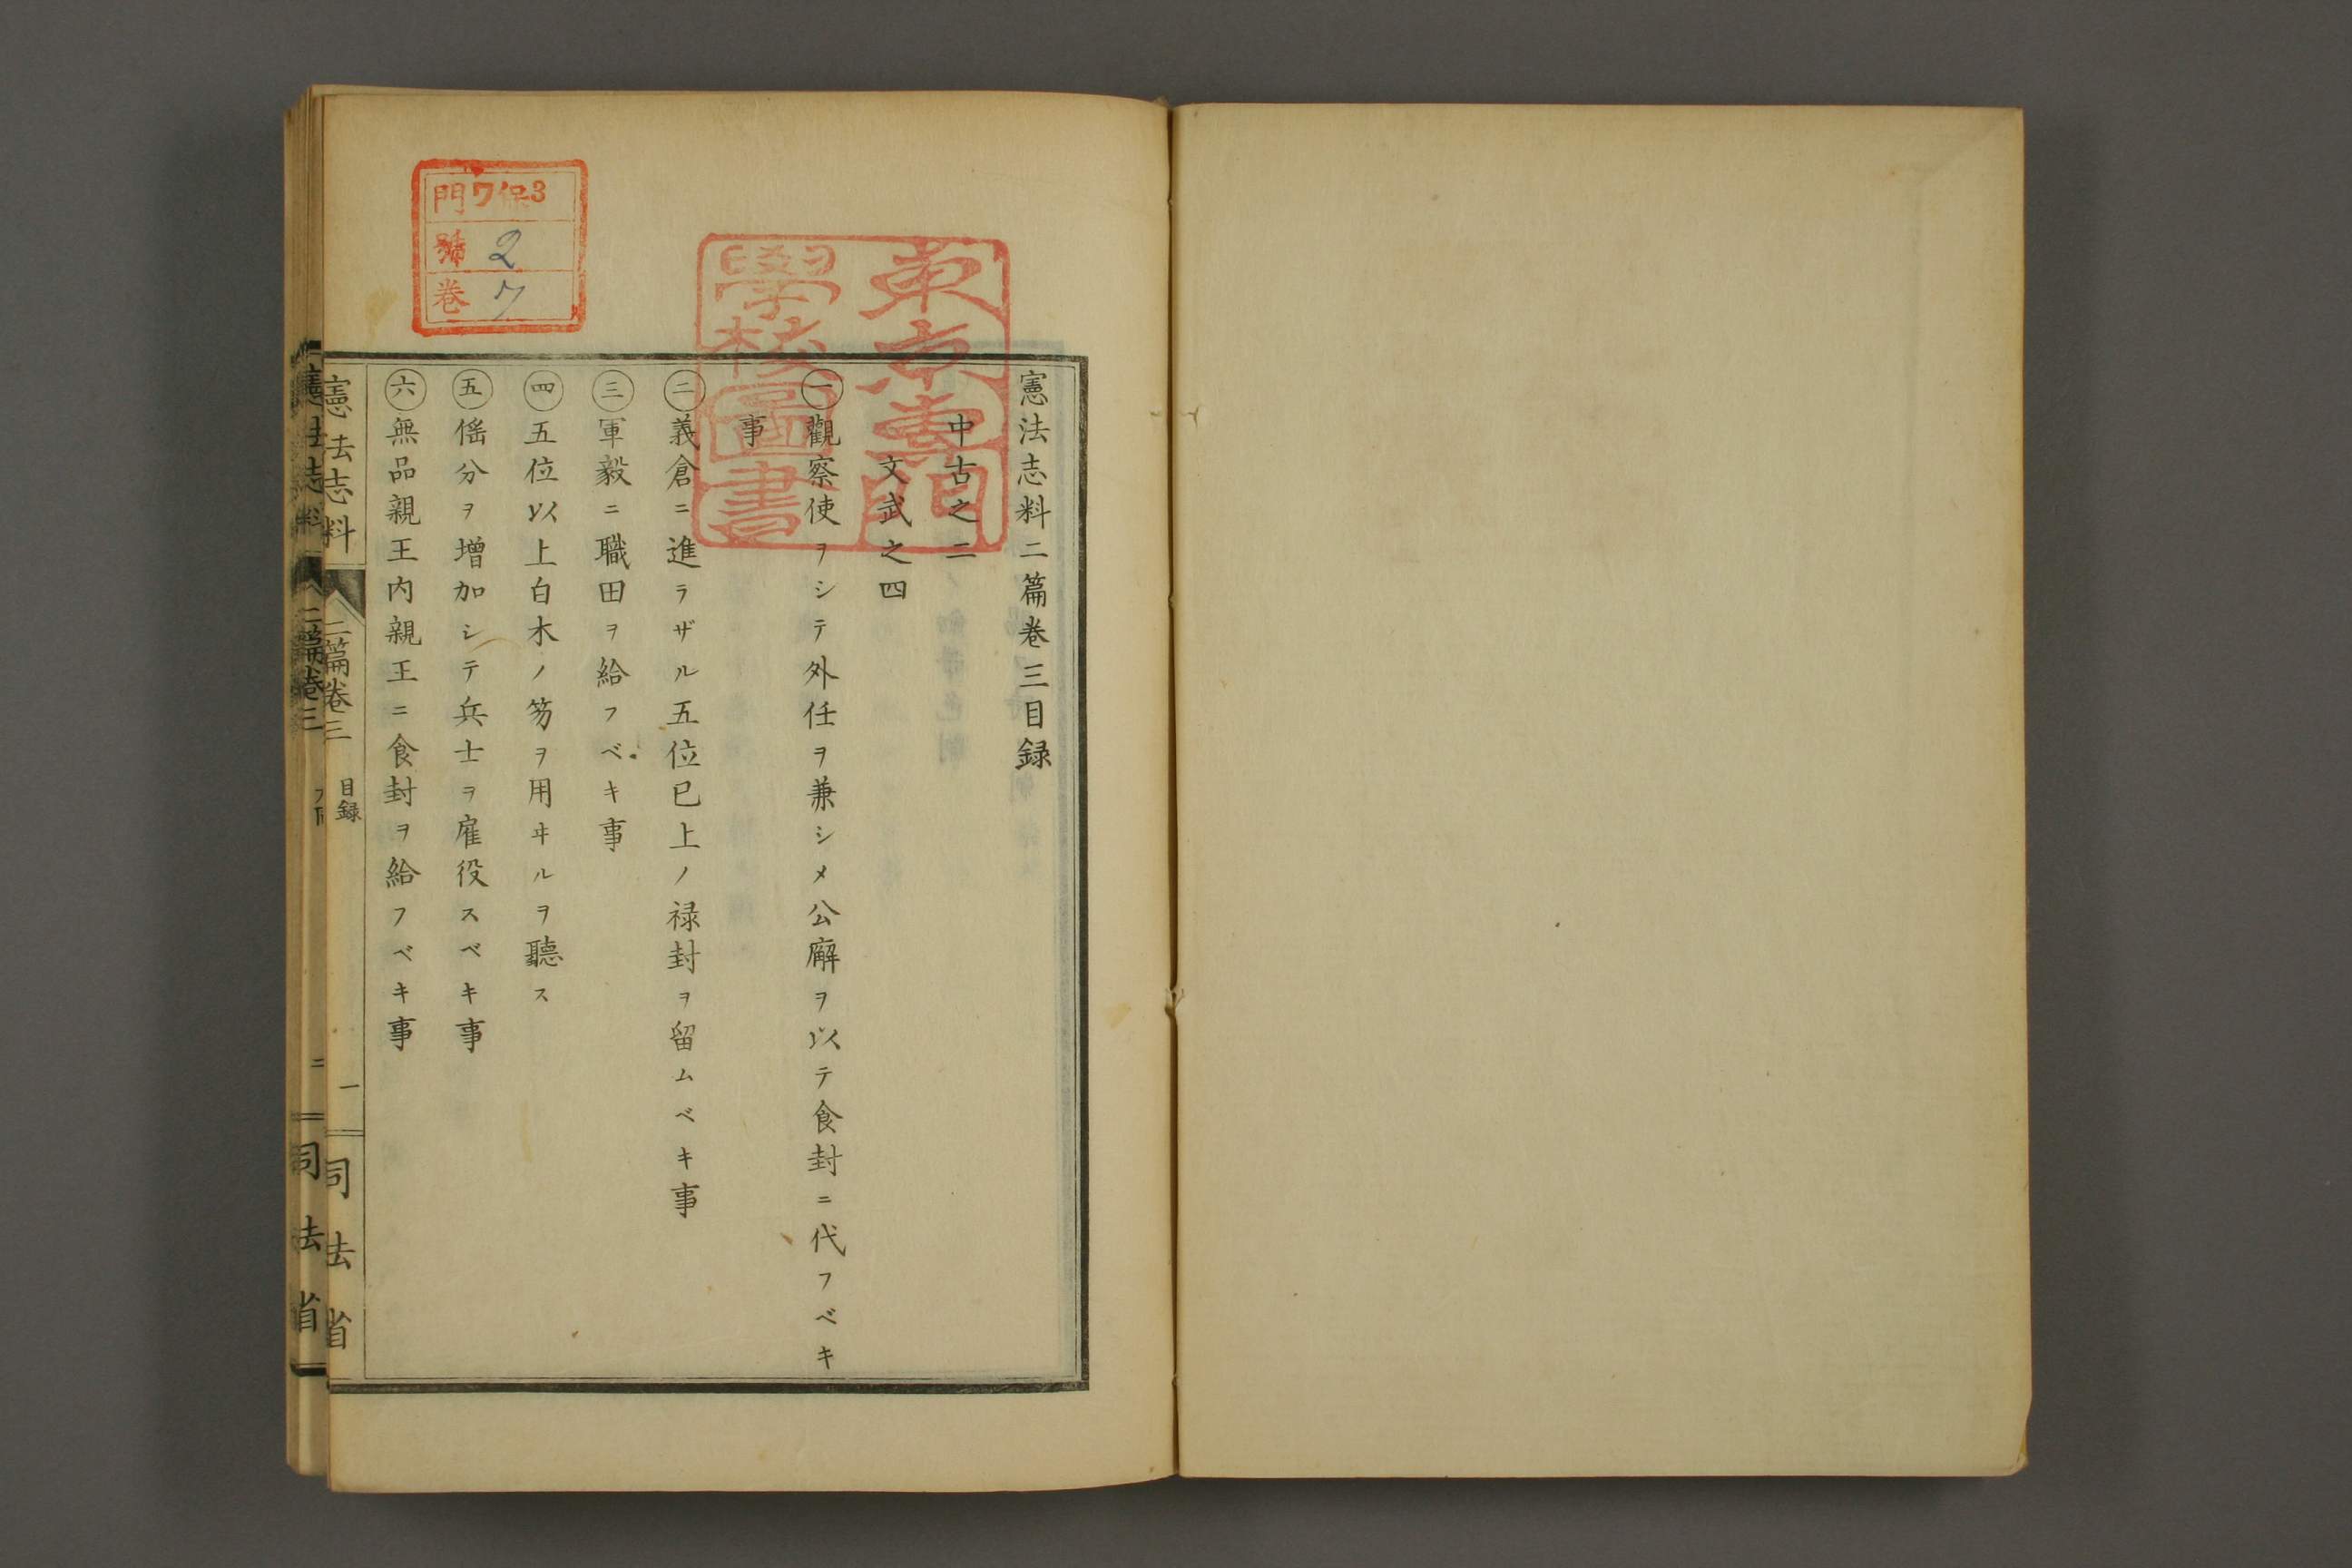 憲法志料二篇卷三目録
中古之二
文武之四
一 觀察使ヲシテ外任ヲ兼シメ公廨ヲ以テ食封ニ代フベキ
事
二 義倉ニ進ラザル五位已上ノ禄封ヲ留ムベキ事
三 軍毅ニ職田ヲ給フベキ事
四 五位以上白木ノ笏ヲ用ヰルヲ聽ス
五 徭分ヲ増加シテ兵士ヲ雇役スベキ事
六 無品親王内親王ニ食封ヲ給フベキ事
憲法志料 二篇卷三 目録 一 司法省
憲法志料 二篇卷三 二 司法省
東京專門
學校圖書
門 7 3
號 2
卷 7